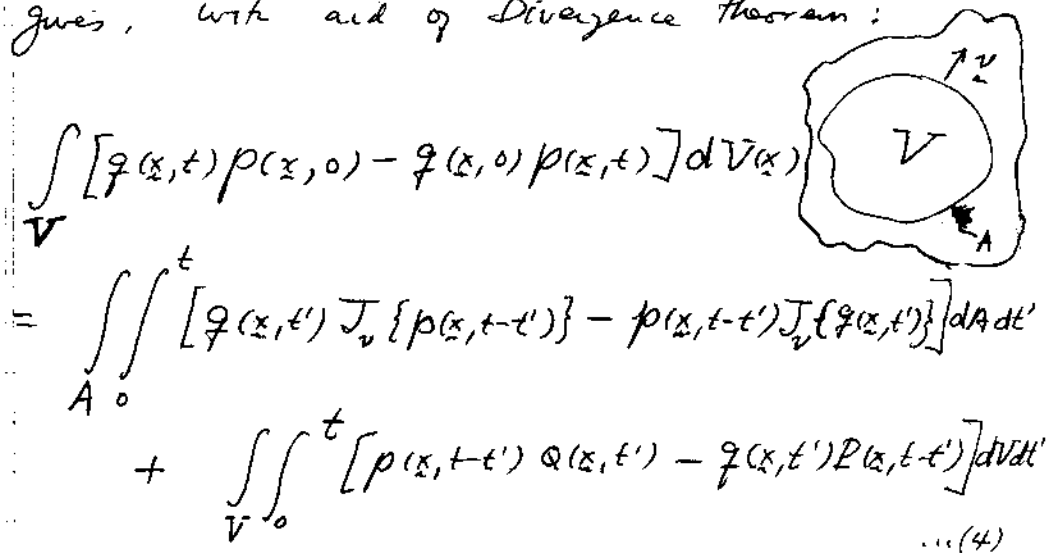 gives, with aid of Divergence theorem:
∫_V [q(x̰,t) p(x̰,0) − q(x̰,0) p(x̰,t)] dV(x̰)
ν̰
V
A
= ∫_A ∫_0^t [q(x̰,t') J_ν{p(x̰,t-t')} − p(x̰,t-t') J_ν{q(x̰,t')}] dA dt'
+ ∫_V ∫_0^t [p(x̰,t-t') Q(x̰,t') − q(x̰,t') P(x̰,t-t')] dV dt'
...(4)